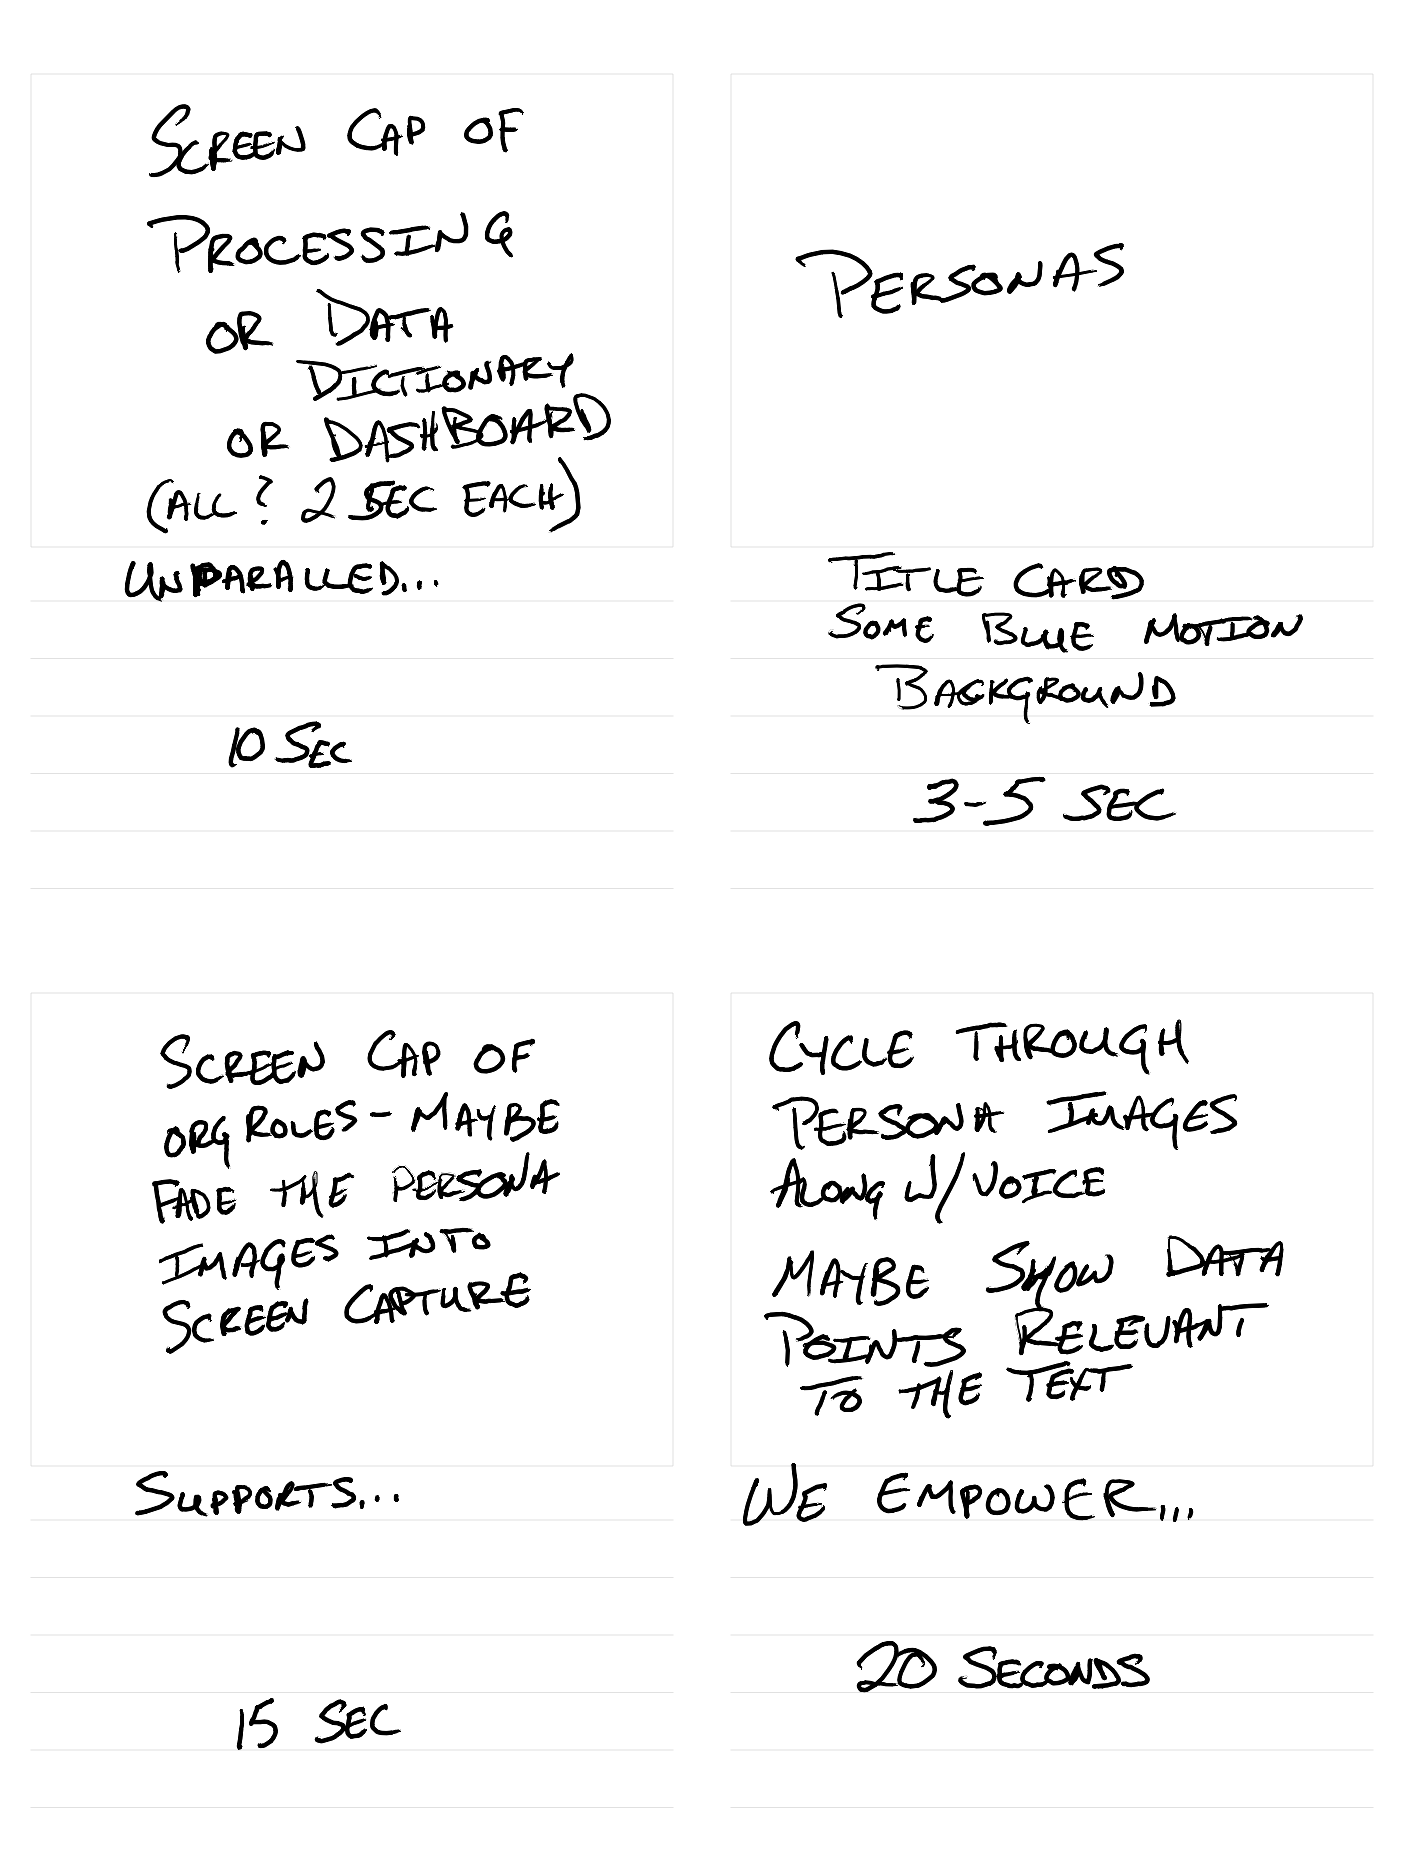 SCREEN CAP OF
PROCESSING
OR DATA
DICTIONARY
OR DASHBOARD
(ALL? 2 SEC EACH)
UNPARALLED...
10 SEC
PERSONAS
TITLE CARD
SOME BLUE MOTION
BACKGROUND
3-5 SEC
SCREEN CAP OF
ORG ROLES - MAYBE
FADE THE PERSONA
IMAGES INTO
SCREEN CAPTURE
SUPPORTS...
15 SEC
CYCLE THROUGH
PERSONA IMAGES
ALONG W/ VOICE
MAYBE SHOW DATA
POINTS RELEVANT
TO THE TEXT
WE EMPOWER...
20 SECONDS